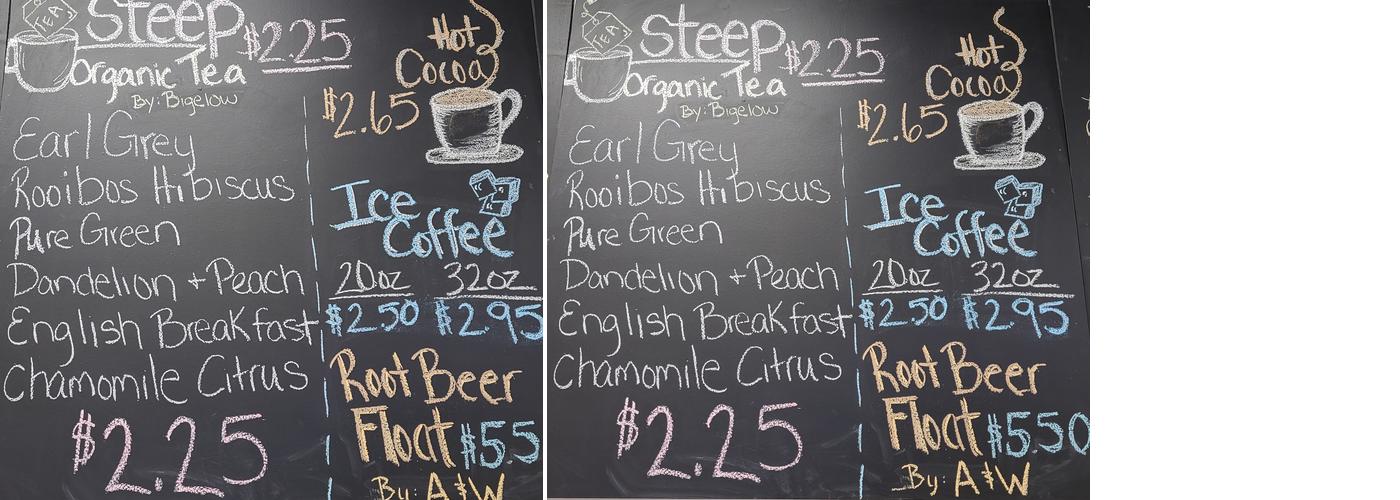 TEA
Steep $2.25
Organic Tea
By: Bigelow
Earl Grey
Rooibos Hibiscus
Pure Green
Dandelion + Peach
English Breakfast
Chamomile Citrus
$2.25
Hot
Cocoa
$2.65
Ice
Coffee
20oz 32oz
$2.50 $2.95
Root Beer
Float $55
By: A&W
TEA
Steep $2.25
Organic Tea
By: Bigelow
Earl Grey
Rooibos Hibiscus
Pure Green
Dandelion + Peach
English Breakfast
Chamomile Citrus
$2.25
Hot
Cocoa
$2.65
Ice
Coffee
20oz 32oz
$2.50 $2.95
Root Beer
Float $5.50
By: A&W